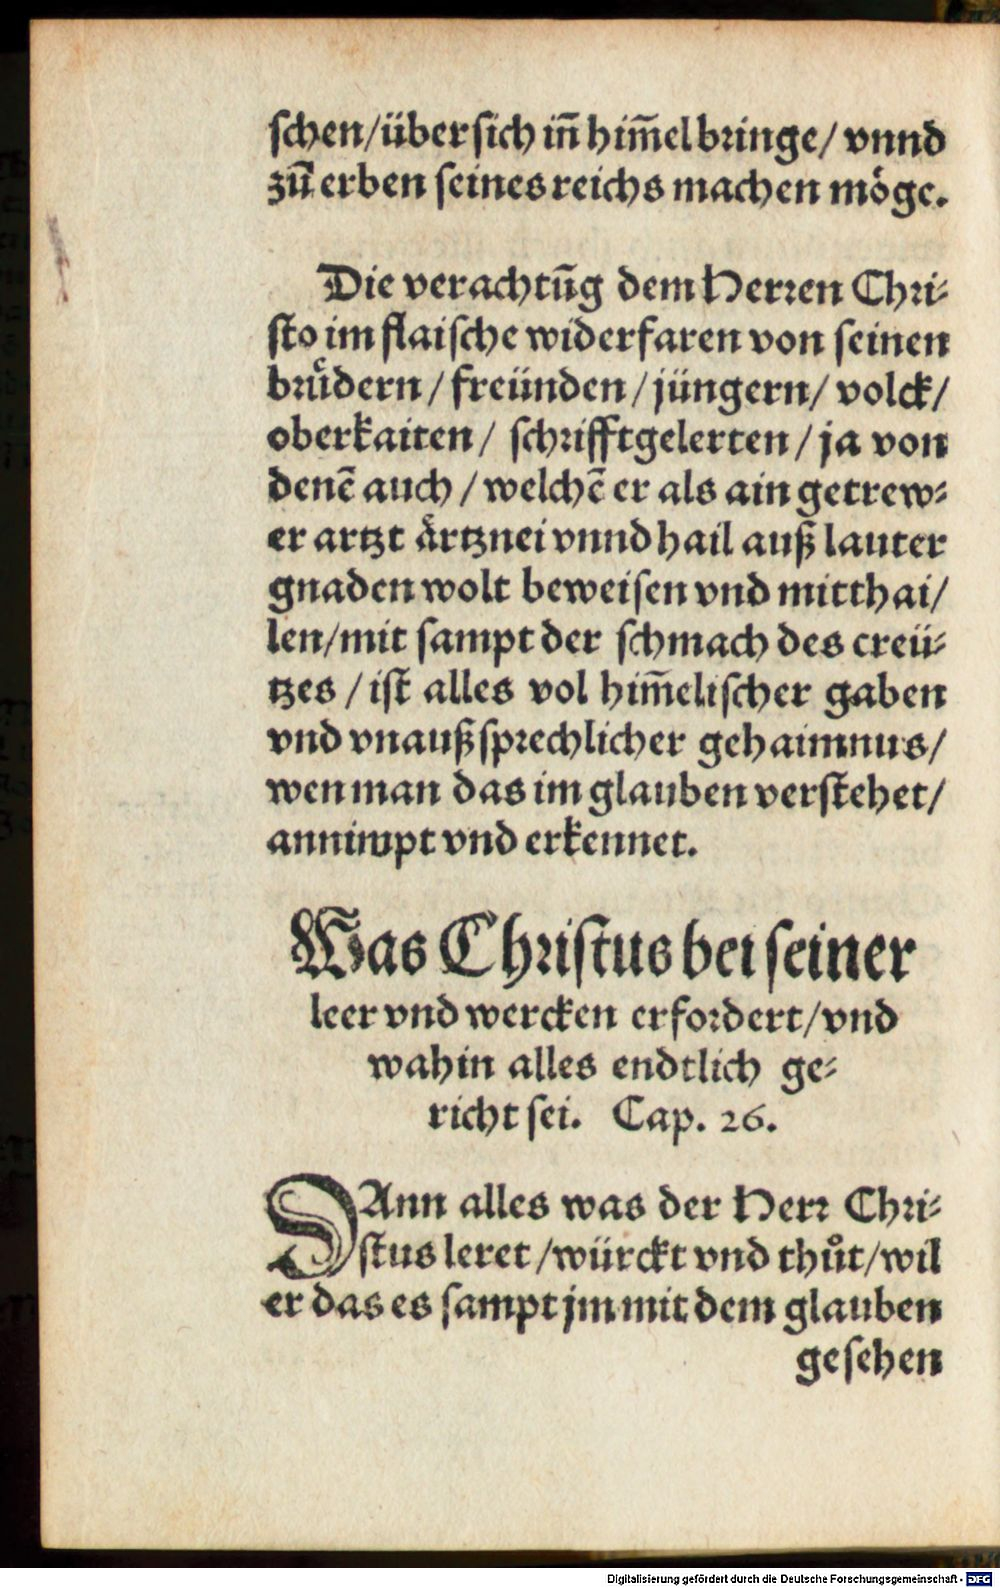 schen/über sich in̄ him̄el bringe/ vnnd
zū erben seines reichs machen möge.
Die verachtūg dem Herren Chri⸗
sto im flaische widerfaren von seinen
bruͤdern / freünden / jüngern/ volck/
oberkaiten/ schrifftgelerten / ja von
denē auch / welchē er als ain getrew⸗
er artzt ärtznei vnnd hail auß lauter
gnaden wolt beweisen vnd mitthai/
len/mit sampt der schmach des creü⸗
tzes / ist alles vol him̄elischer gaben
vnd vnaußsprechlicher gehaimnus/
wen man das im glauben verstehet/
annimpt vnd erkennet.
Was Christus bei seiner
leer vnd wercken erfordert/vnd
wahin alles endtlich ge⸗
richt sei. Cap. 26.
DAnn alles was der Herr Chri⸗
stus leret /würckt vnd thůt/wil
er das es sampt jm mit dem glauben
gesehen
Digitalisierung gefördert durch die Deutsche Forschungsgemeinschaft - DFG